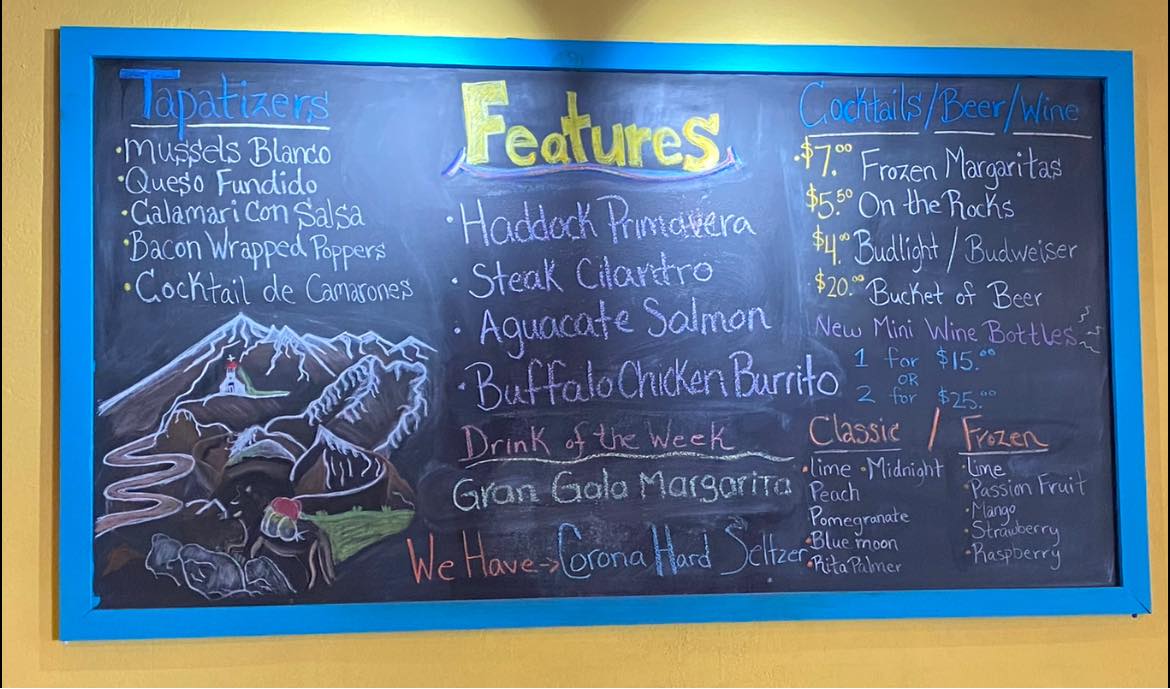 Tapatizers
Mussels Blanco
Queso Fundido
Calamari Con Salsa
Bacon Wrapped Poppers
Cocktail de Camarones
Features
Haddock Primavera
Steak Cilantro
Aguacate Salmon
Buffalo Chicken Burrito
Drink of the Week
Gran Gala Margarita
We Have → Corona Hard Seltzer
Cocktails/Beer/Wine
$7.00 Frozen Margaritas
$5.50 On the Rocks
$4.00 Budlight / Budweiser
$20.00 Bucket of Beer
New Mini Wine Bottles
1 for $15.00
OR
2 for $25.00
Classic / Frozen
lime • Midnight
Peach
Pomegranate
Blue moon
Rita Palmer
Lime
Passion Fruit
Mango
Strawberry
Raspberry